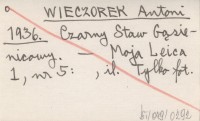 WIECZOREK Antoni
1936. Czarny Staw Gąsie-
nicowy. — Moja Leica
1, nr 5: , il. Tylko fot.